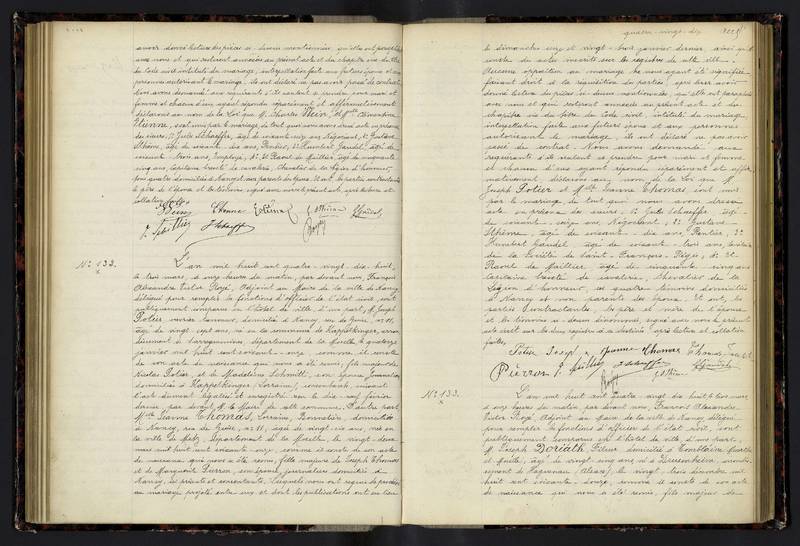 avons donné lecture des pièces ci-dessus mentionnées, qu'elles ont paraphées
avec nous et qui resteront annexées au présent acte et du chapitre six du titre
du Code civil intitulé du mariage, interpellation faite aux futurs époux et aux
personnes autorisant le mariage, ils ont déclaré ne pas avoir passé de contrat.
Nous avons demandé aux requérants s'ils veulent se prendre pour mari et
femme et chacun d'eux ayant répondu séparément et affirmativement
déclarons au nom de la Loi que M. Charles et Mlle Clémentine
Etienne, sont unis par le mariage, de tout quoi nous avons dressé acte en présence
des sieurs, 1° Jules Schaeffer, âgé de soixante-seize ans, Négociant, 2° Gustave
âgé de soixante-dix ans, Rentier, 3° Humbert Gaudel, âgé de
soixante-trois ans, Employé, 4° et Raoul de Maillier, âgé de cinquante
cinq ans, Capitaine breveté de cavalerie, Chevalier de la Légion d'honneur,
tous quatre domiciliés à Nancy et non parents des époux. Et ont, les parties contractantes
le père de l'épouse et les témoins signé avec nous le présent acte, après lecture et
collation faites,
Etienne
Schaeffer
N° 132.
L'an mil huit cent quatre-vingt-dix-huit,
le trois mars, à onze heures du matin, par devant nous, François
Alexandre Victor Adjoint au Maire de la ville de Nancy
délégué pour remplir les fonctions d'officier de l'état civil, sont
publiquement comparus en l'hôtel de ville, d'une part, M. Joseph
Potier, ouvrier tanneur, domicilié à Nancy, rue de
âgé de vingt-sept ans, né en la commune de Kappelkinger, arron-
dissement de Sarreguemines, département de la Moselle, le quatorze
janvier mil huit cent soixante-onze, comme il conste
de son acte de naissance qui nous a été remis, fils majeur de
Nicolas Potier, et de Madeleine Schmitt, son épouse, Journaliers
domiciliés à Kappelkinger (Lorraine), consentants, suivant
l'acte dûment légalisé et enregistré, reçu le dix-neuf février
dernier, par devant M. le Maire de cette commune. D'autre part
Mlle Jeanne Thomas, Lorraine, Bonnetière, domiciliée
à Nancy, rue de N° 11, âgée de vingt-six ans, née en
la ville de Metz, Département de la Moselle, le vingt-deux
mars mil huit cent soixante-onze, comme il conste de son acte
de naissance qui nous a été remis, fille majeure de Joseph Thomas
et de Marguerite Pierron, son épouse, journaliers domiciliés à
Nancy, ici présents et consentants. Lesquels nous ont requis de procéder
au mariage projeté entre eux et dont les publications ont eu lieu
quatre-vingt-dix
le dimanche seize et vingt-trois janvier dernier, ainsi qu'il
conste des actes inscrits sur les registres de cette ville.
Aucune opposition au mariage ne nous ayant été signifiée
faisant droit à la réquisition des parties, après leur avoir
donné lecture des pièces ci-dessus mentionnées, qu'elles ont paraphées
avec nous et qui resteront annexées au présent acte et du
chapitre six du titre du Code civil, intitulé du mariage,
interpellation faite aux futurs époux et aux personnes
autorisant le mariage, ils ont déclaré ne pas avoir
passé de contrat. Nous avons demandé aux
requérants s'ils veulent se prendre pour mari et femme
et chacun d'eux ayant répondu séparément et affir-
mativement, déclarons au nom de la Loi que M.
Joseph Potier et Mlle Jeanne Thomas sont unis
par le mariage, de tout quoi nous avons dressé
acte en présence des sieurs, 1° Jules Schaeffer, âgé
de soixante-seize ans, Négociant, 2° Gustave
âgé de soixante-dix ans, Rentier, 3°
Humbert Gaudel, âgé de soixante-trois ans,
de la Société de Saint-François-Régis, 4° et
Raoul de Maillier, âgé de cinquante-cinq ans
Capitaine breveté de cavalerie, Chevalier de la
Légion d'honneur, les quatre témoins domiciliés
à Nancy et non parents des époux. Et ont, les
parties contractantes, le père et mère de l'épouse,
et les témoins ci-dessus dénommés, signé avec nous le présent
acte écrit sur les deux registres à ce destinés, après lecture et collation
faites,
Potier Joseph Jeanne Thomas Thomas
Pierron Schaeffer
N° 133.
L'an mil huit cent quatre-vingt-dix-huit, le trois mars,
à onze heures du matin, par devant nous, François Alexandre
Victor Adjoint au Maire de la ville de Nancy, délégué
pour remplir les fonctions d'officier de l'état civil, sont
publiquement comparus en l'hôtel de ville, d'une part,
M. Joseph Doriath, domicilié à Tomblaine (Meurthe
et Moselle), âgé de vingt-cinq ans, né à Drusenheim, arrondis-
sement de Haguenau (Alsace), le vingt-trois décembre mil
huit cent soixante-douze, comme il conste de son acte
de naissance qui nous a été remis, fils majeur de